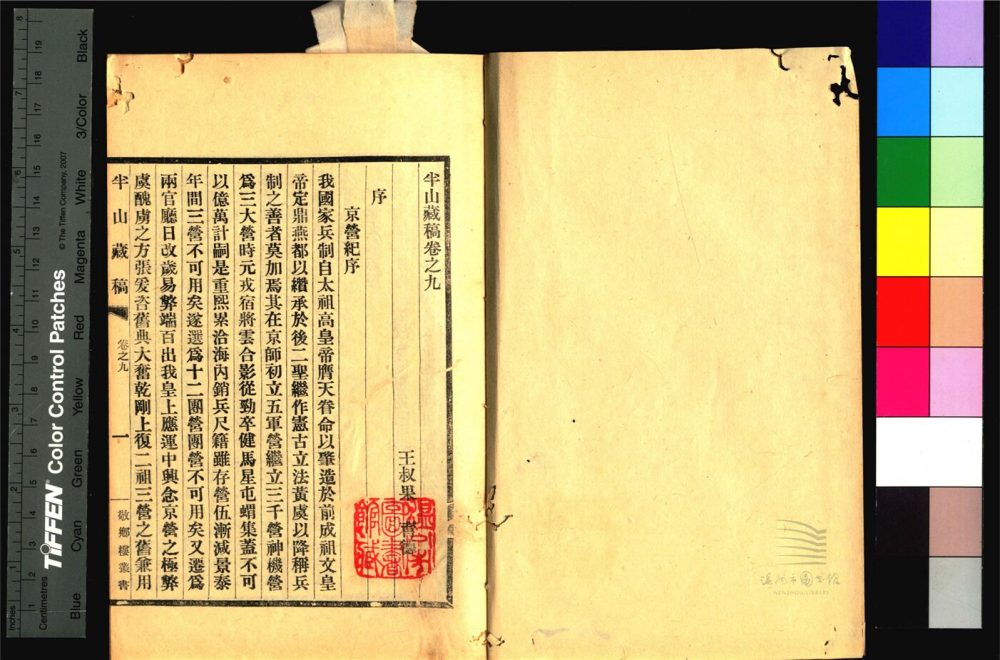 半山藏稿卷之九
王叔果
序
京營紀序
我國家兵制自太祖高皇帝膺天眷命以肇造於前成祖文皇
帝定鼎燕都以纘承於後二聖繼作憲古立法黃虞以降稱兵
制之善者莫加焉其在京師初立五軍營繼立三千營神機營
爲三大營時元戎宿將雲合影從勁卒健馬星屯蝟集蓋不可
以億萬計嗣是重熙累洽海內銷兵尺籍雖存營伍漸減景泰
年間三營不可用矣遂選爲十二團營團營不可用矣又選爲
兩官廳日改歲易弊端百出我皇上應運中興念京營之極弊
虞醜虜之方張爰咨舊典大奮乾剛上復二祖三營之舊兼用
半山藏稿
卷之九
一
敬鄉樓叢書
溫州市圖書館
WENZHOU LIBRARY
Inches
Centimetres
TIFFEN® Color Control Patches
© The Tiffen Company, 2007
Blue
Cyan
Green
Yellow
Red
Magenta
White
3/Color
Black